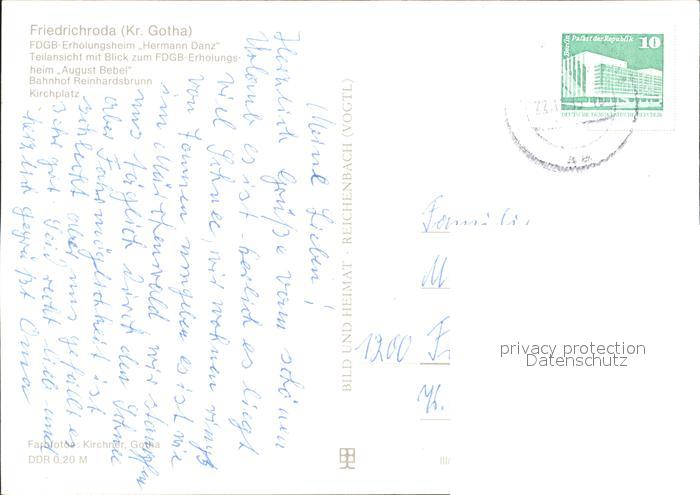 Friedrichroda (Kr. Gotha)
FDGB-Erholungsheim „Hermann Danz"
Teilansicht mit Blick zum FDGB-Erholungs-
heim „August Bebel"
Bahnhof Reinhardsbrunn
Kirchplatz
Meine Lieben!
Herzlich Grüße vom schönen
Urlaub es ist herlich es liegt
viel Schnee, wir wohnen rings
von Tannen umgeben es ist wie
im Märchenwald wir stampfen
uns täglich durch den Schnee
aber Fahrmöglichkeit ist
schlecht aber uns gefällt es
sehr gut. Seid recht lieb und
herzlich gegrüßt Oma
Farbfotos: Kirchner, Gotha
DDR 0,20 M
BILD UND HEIMAT · REICHENBACH (VOGTL)
Berlin Palast der Republik
10
DEUTSCHE DEMOKRATISCHE REPUBLIK
Famili
M
1200 Fr
privacy protection
Datenschutz